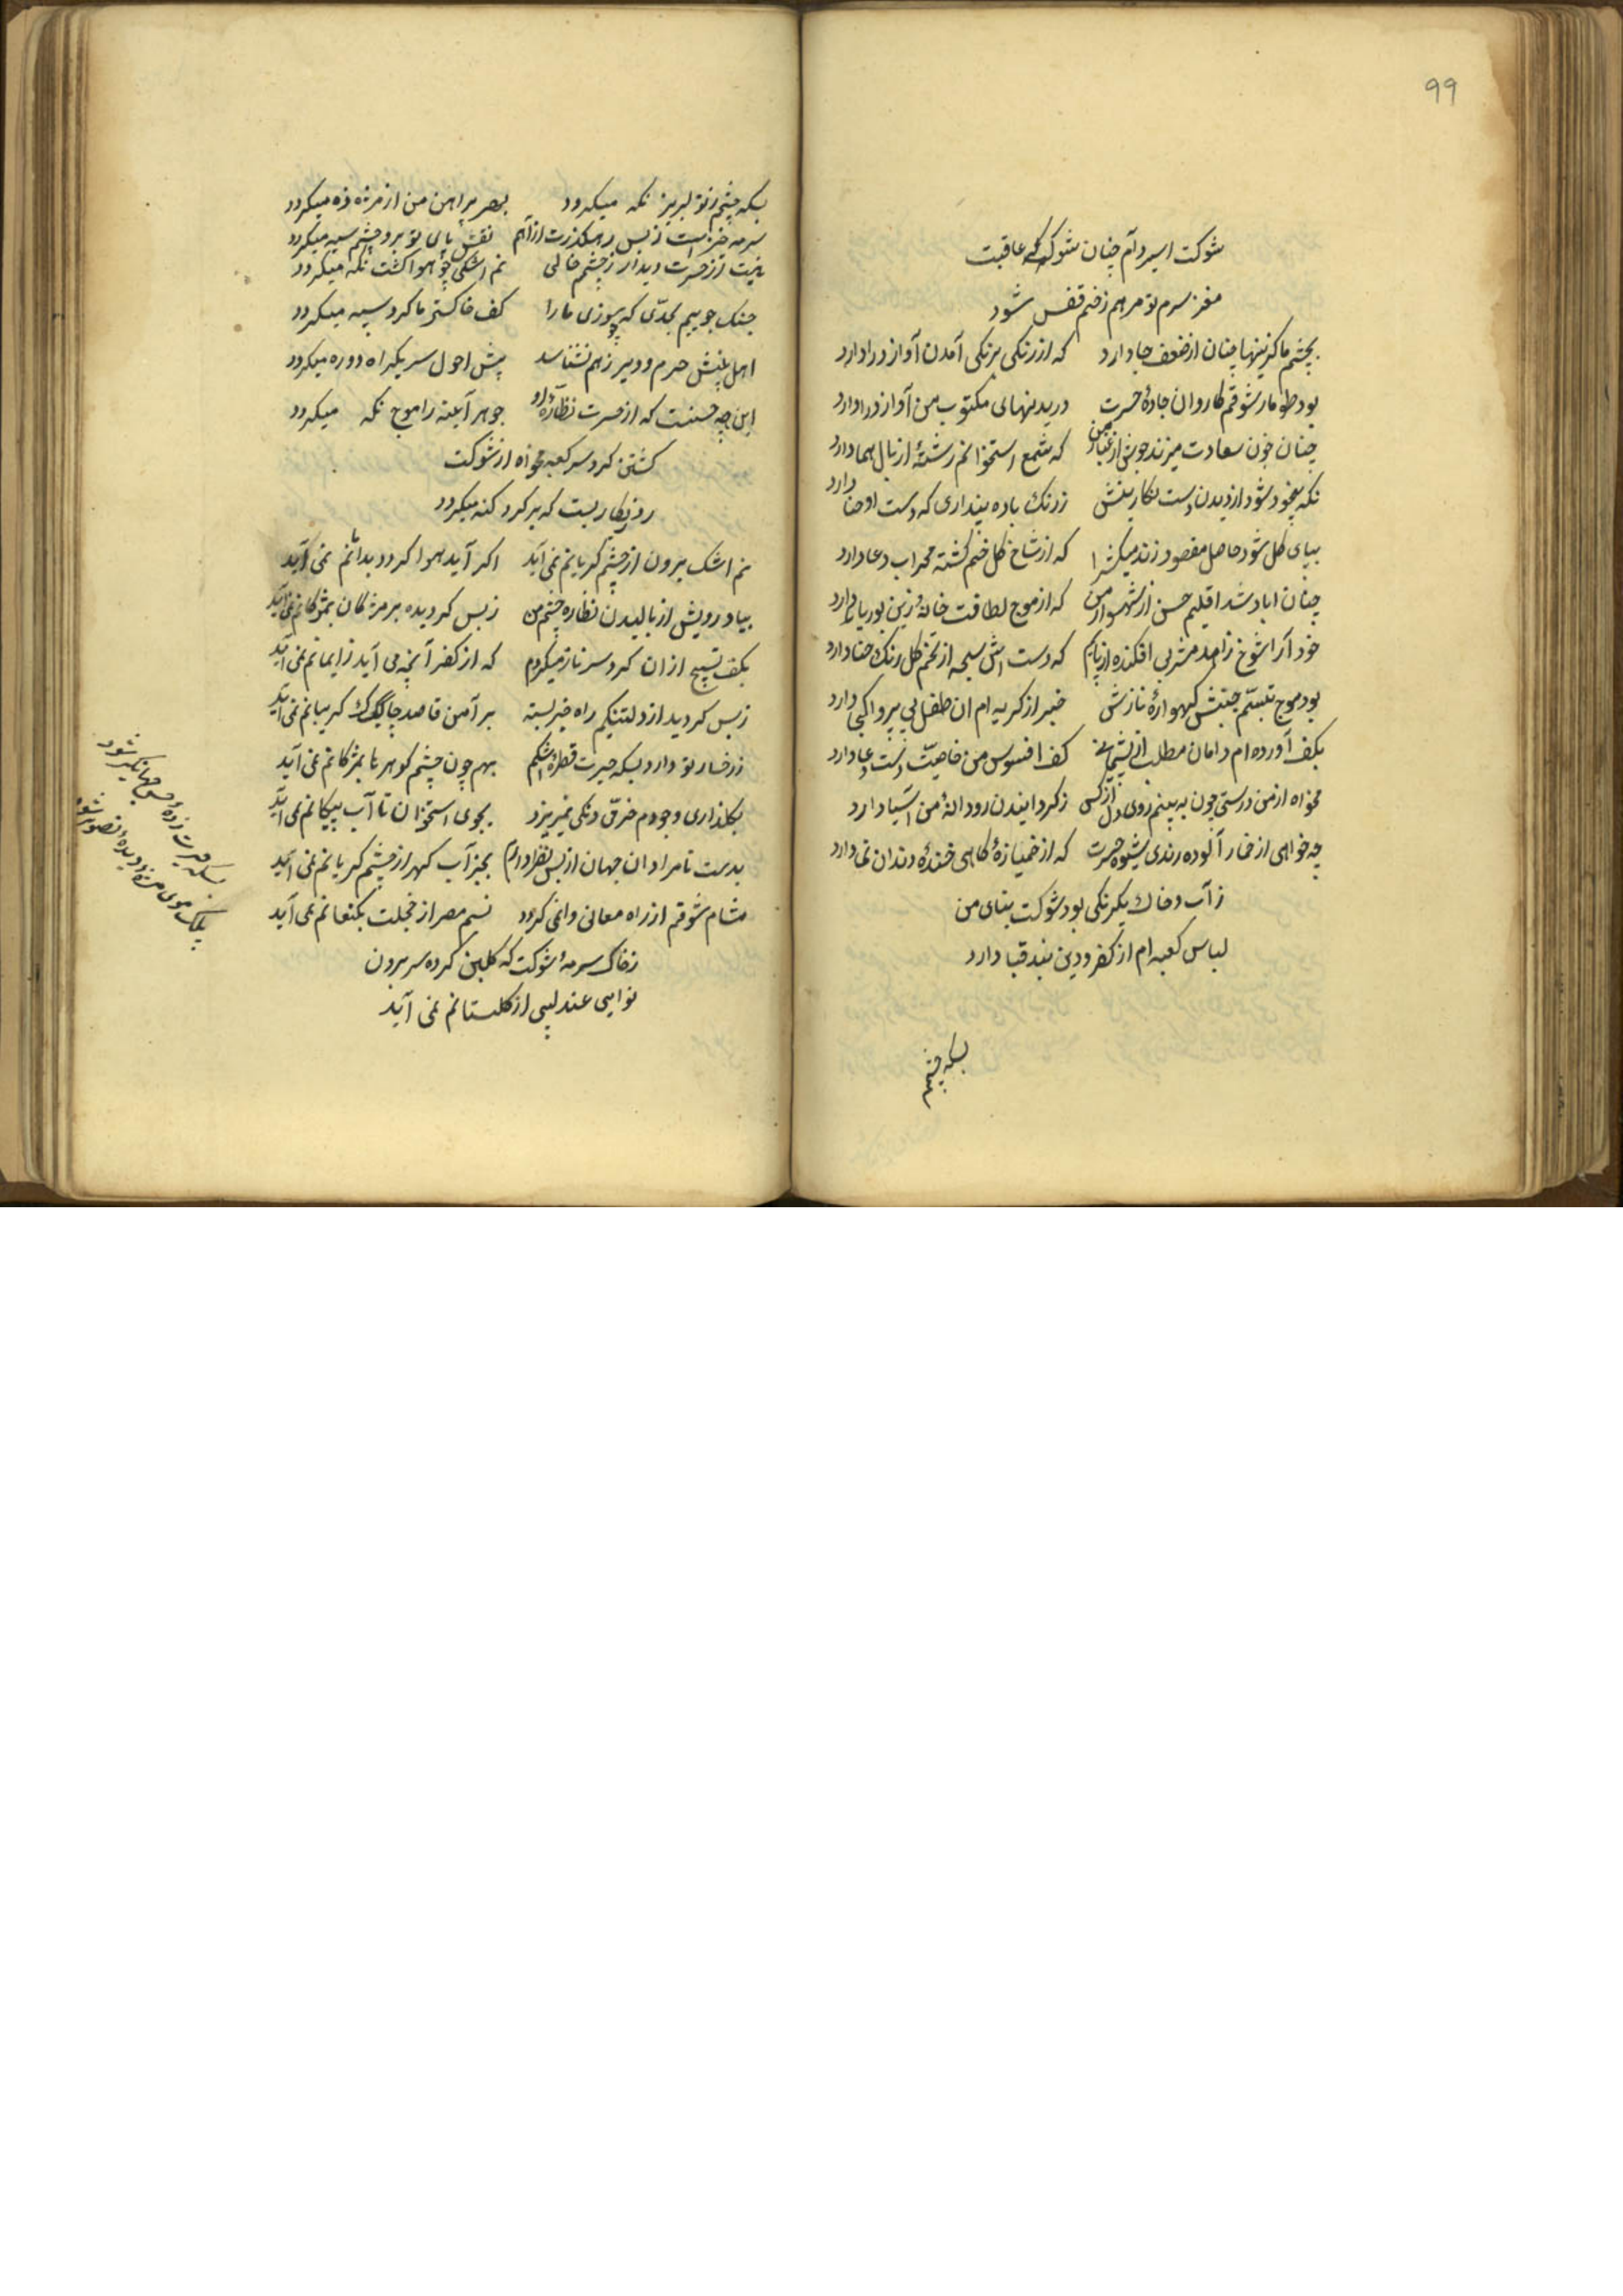 ۹۹
شوکت اسیر دام چنان شو که عاقبت
مغز سرم تو مرهم زخم قفس شود
بچشم ما کزینها چنان از ضعف جا دارد که از رنکی برنکی آمدن آواز درا دارد
بود طومار شوقم کاروان جادهٔ حسرت دریدنهای مکتوب من آواز درا دارد
چنان خون سعادت میزند جوش از غبار من که شمع استخوانم رشتهٔ از بال هما دارد
نکه بیخود شود از دیدن دست نکارینش ز رنک باده پنداری که دست او حنا دارد
بپای کل شود حاصل مقصود که از شاخ کل خم کشته محراب دعا دارد
چنان اباد شد اقلیم حسن از شهسوار من که از موج لطافت خانهٔ زین بوریا دارد
خود آرا شوخ زاهد مشربی افکنده از پایم که دست اش سبحه از تخم کل رنک حنا دارد
بود موج تبسّم جنبش کهوارهٔ نازش خبر از کریه ام ان طفل بی پروا کجا دارد
بکف آورده ام دامان مطلب از پشیمانی کف افسوس من خاصیّت دست دعا دارد
مخواه از من درستی چون به بینم روی دل از کس ز کردانیدن رو دانهٔ من آسیا دارد
چه خواهی از خمار آلوده رندی شیوه حسرت که از خمیازهٔ کاهی خندهٔ دندان نما دارد
ز آب و خاک یکرنکی بود شوکت بنای من
لباس کعبه ام از کفر و دین بند قبا دارد
بسکه چشمم
بسکه چشمم ز تو لبریز نکه میکردد بهر من از مژه زه میکردد
سرمه خیز است ز بس رهکذرت از آهم نقش پای تو برو چشم سیه میکردد
نیست از حسرت دیدار ز چشم خالی نم اشکی چو هوا کشت نکه میکردد
جنک جوییم بحدّی که بسوزی ما را کف خاکستر ما کرد سپه میکردد
اهل بینش حرم و دیر ز هم نشناسد پیش احول سر یکراه دو ره میکردد
این چه حسنست که از حسرت نظارهٔ او جوهر آینه را موج نکه میکردد
کشتن کرد سر کعبه مخواه از شوکت
رو کاریست که بر کرد کنه میکردد
نم اشک برون از چشم کریانم نمی آید اکر آید هوا کردد بدامانم نمی آید
بیاد رویش از بالیدن نظاره چشم من ز بس کردیده بر مژکان بمژکانم نمی آید
بکف تسبیح از ان کرد سر نازت میکردم که از کفر آنچه می آید ز ایمانم نمی آید
ز بس کردید از دلتنکیم راه خبر بسته بر آمن قاصد چاک کریبانم نمی آید
ز رخسار تو دارد بسکه حیرت قطرهٔ اشکم بهم چون چشم کوهر تا بمژکانم نمی آید
بکلذاری وجودم خرّق رنکی نمیریزد بجوی استخوان تا آب پیکانم نمی آید
بدست نامرادان جهان از بس نظر دارم بجز آب کهر از چشم کریانم نمی آید
مشام شوقم از راه معانی وا نمی کردد نسیم مصر از خجلت بکنعانم نمی آید
ز خاک سرمهٔ شوکت که کلبن کرده سر بیرون
نوایی عندلیبی از کلستانم نمی آید
بسکه حیرت زدهٔ حسن جهانکیر شود
پلک موی مژه دیدهٔ تصویر شود